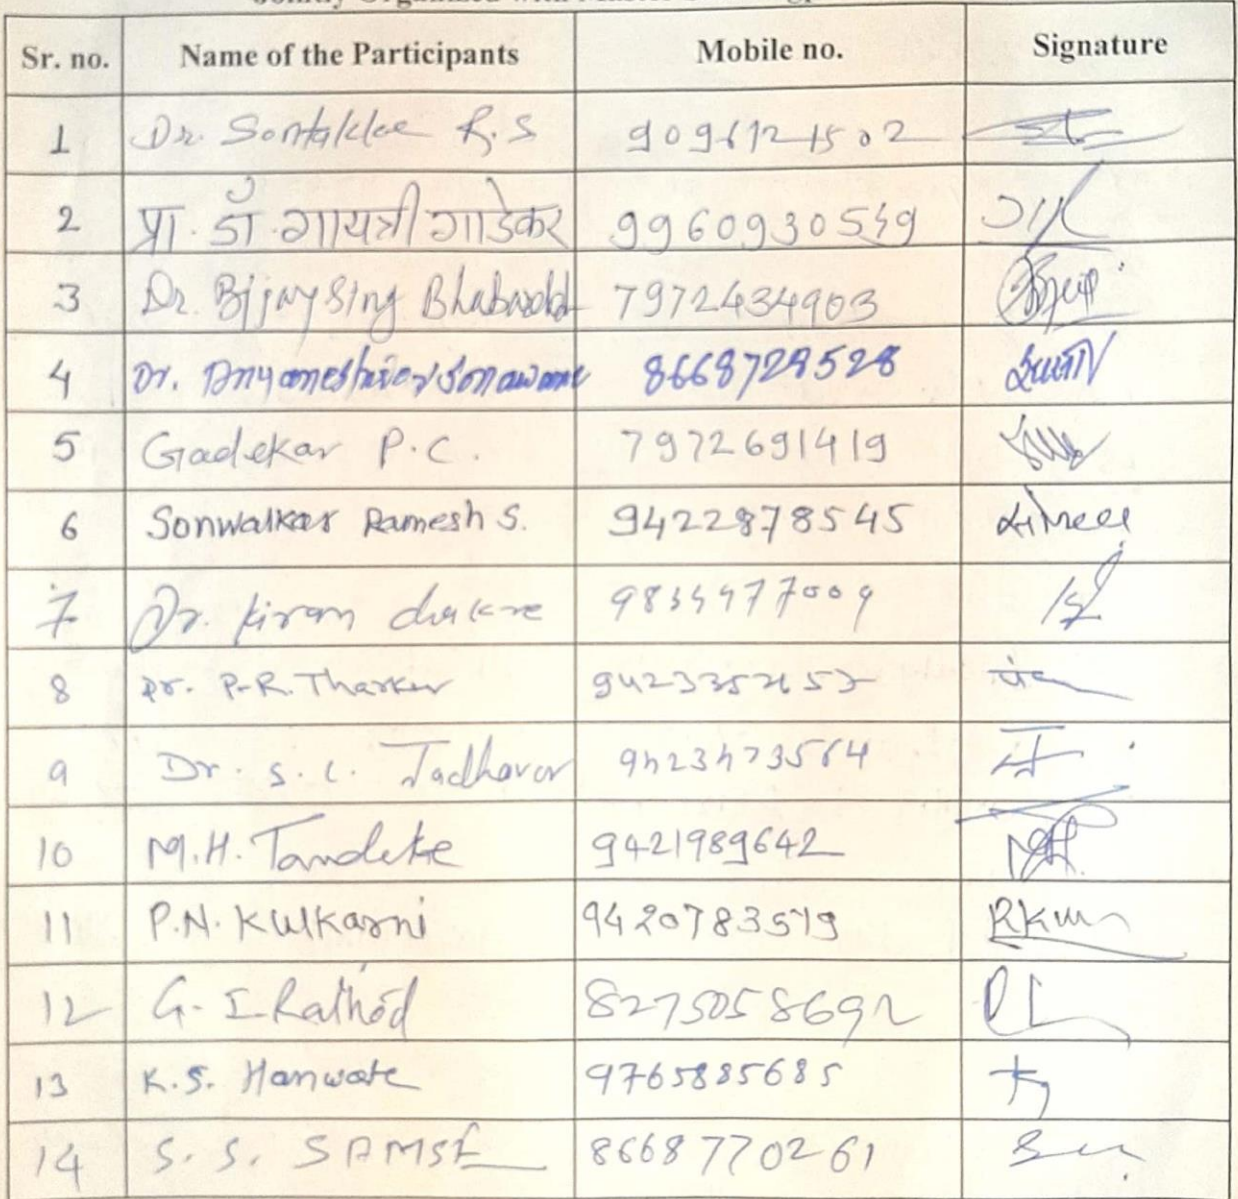 Sr. no. Name of the Participants Mobile no. Signature
1 Dr. Sontakke R.S 9096121502
2 प्रा. डॉ. गायत्री गाडेकर 9960930549
3 Dr. Bijaysing 7972434903
4 Dr. Dnyaneshwar Sonawane 8668729528
5 Gadekar P.C. 7972691419
6 Sonwalkar Ramesh S. 9422878545
7 Dr. Kiran
8 Dr. P.R. Tharkar
9 Dr. S. L. Jadhavar
10 M.H. Tandeke 9421989642
11 P.N. Kulkarni 9420783519 RKum
12 G. I Rathod 8275058692
13 K.S. Hanwate 9765885685
14 S. S. SAMSE 8668770261